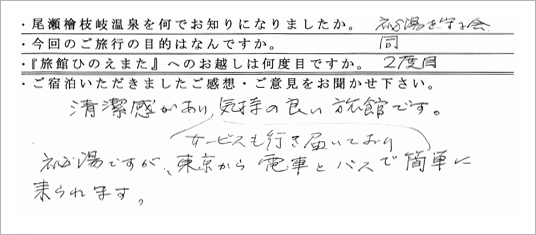 ・尾瀬檜枝岐温泉を何でお知りになりましたか。 秘湯を守る会
・今回のご旅行の目的はなんですか。 同
・『旅館ひのえまた』へのお越しは何度目ですか。 2度目
・ご宿泊いただきましたご感想・ご意見をお聞かせ下さい。
清潔感があり、気持の良い旅館です。
サービスも行き届いており
秘湯ですが、東京から電車とバスで簡単に
来られます。